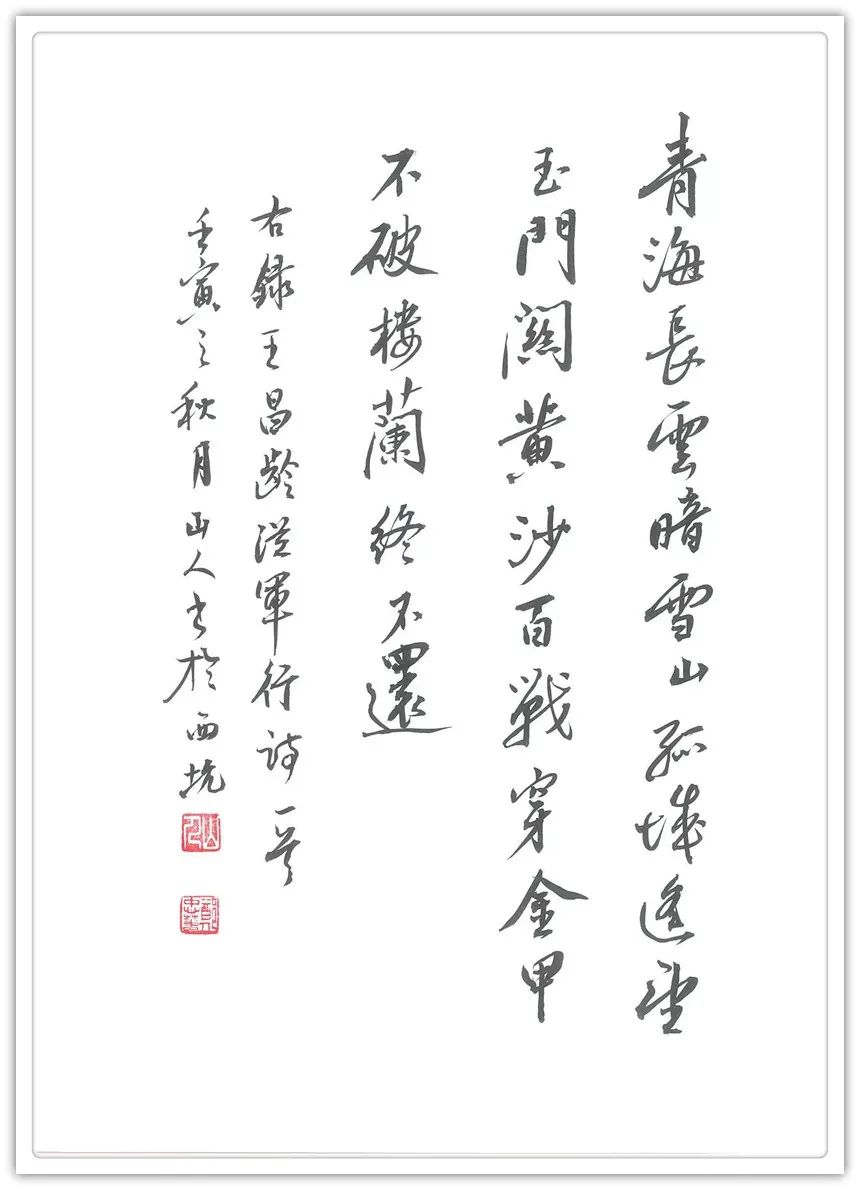 青海長雲暗雪山孤城遙望
玉門關黃沙百戰穿金甲
不破樓蘭終不還
右録王昌齡從軍行詩一首
壬寅之秋月山人書於西坑
山人